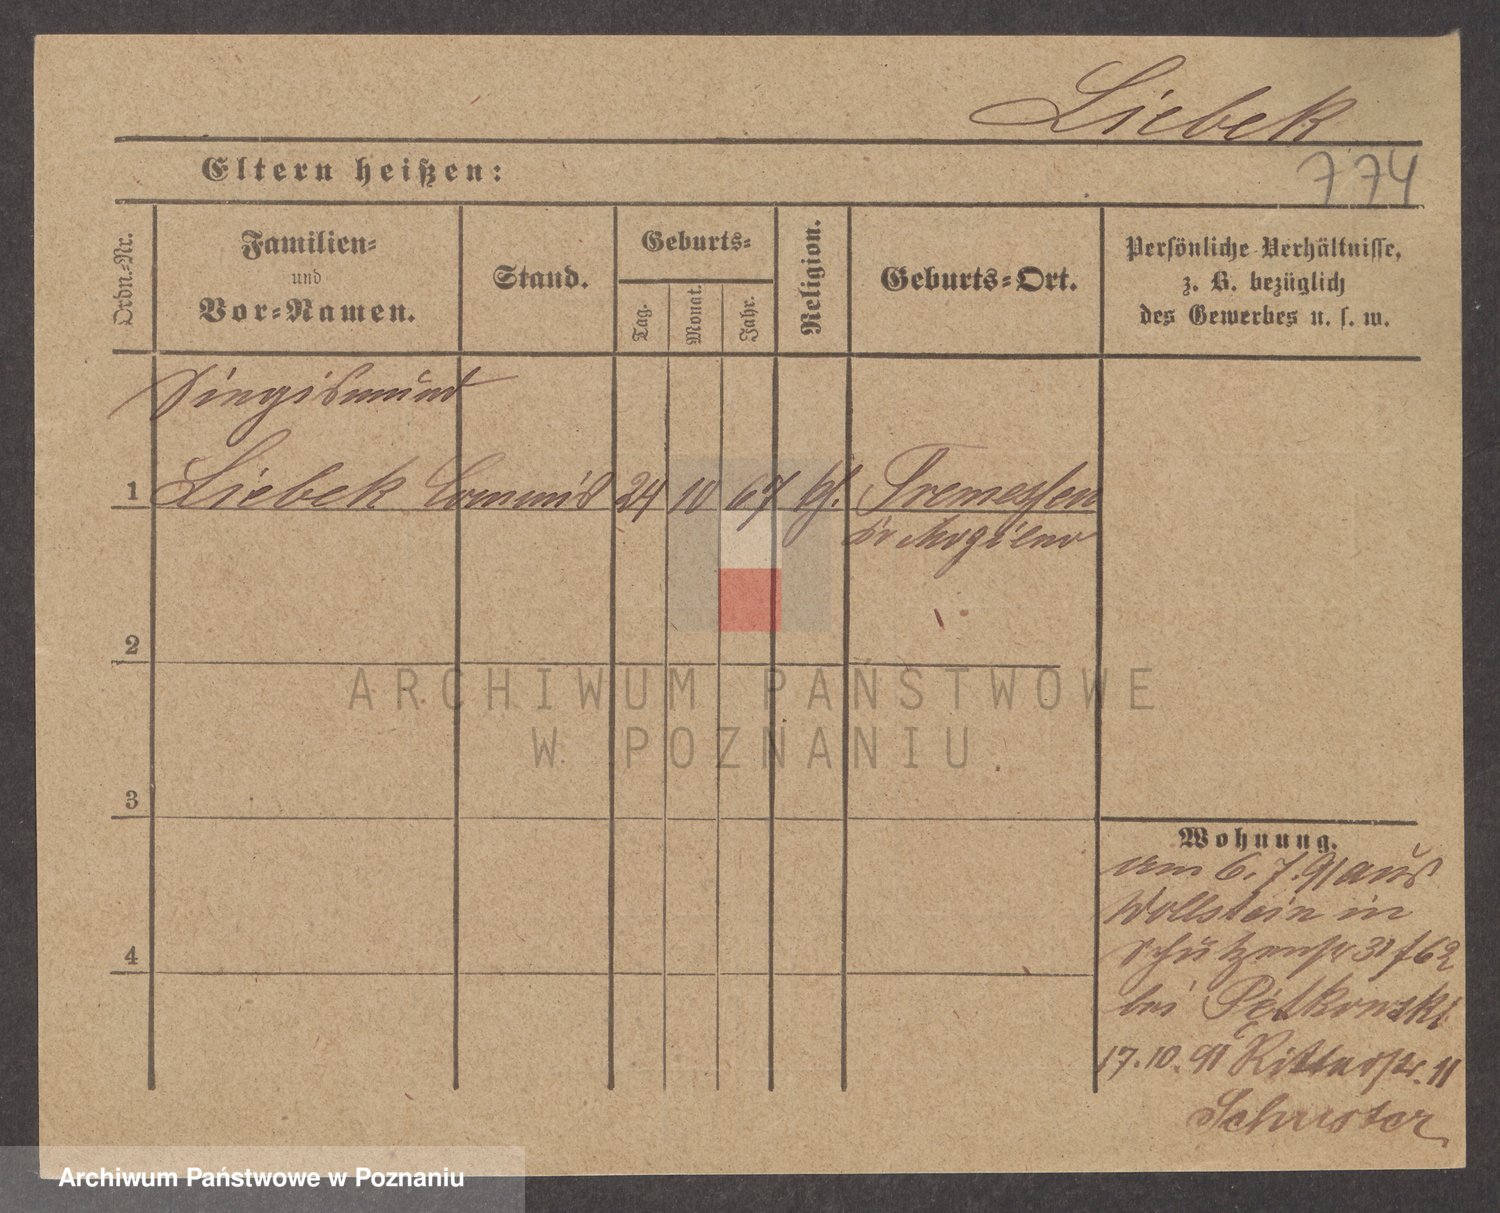 Liebek
Eltern heißen:
774
Ordn.-Nr.
Familien-
und
Vor-Namen.
Stand.
Geburts-
Tag.
Monat.
Jahr.
Religion.
Geburts-Ort.
Persönliche Verhältnisse,
z. B. bezüglich
des Gewerbes u. s. w.
Siegismund
1 Liebek Commis 24 10 67 Tremessen
Kr Mogilno
2
ARCHIWUM PAŃSTWOWE
W POZNANIU
3
Wohnung.
am 6. 7. 91 aus
Wollstein in
Schützenstr 31
4
bei Petkowski
17. 10. 91 Ritterstr. 11
Schuster
Archiwum Państwowe w Poznaniu